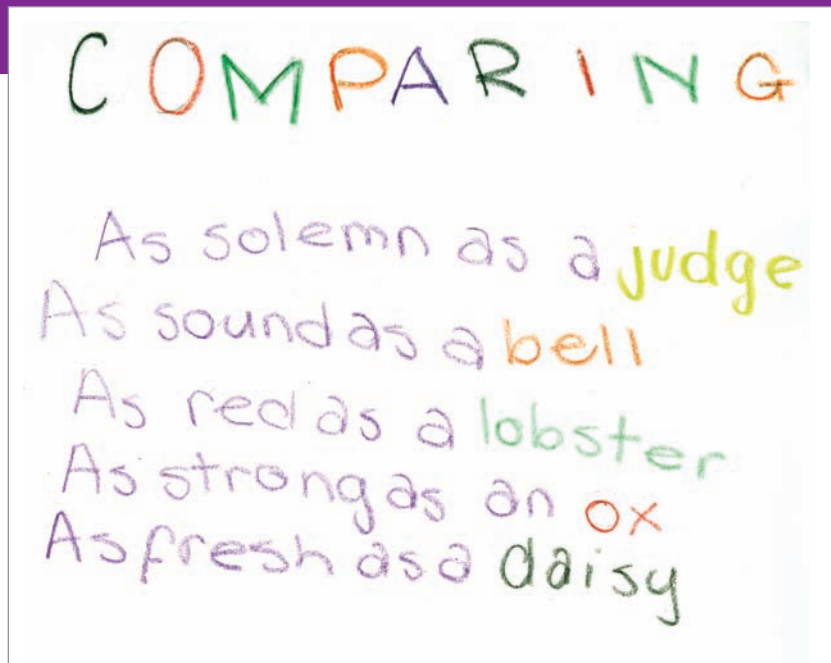 COMPARING
As solemn as a judge
As sound as a bell
As red as a lobster
As strong as an ox
As fresh as a daisy